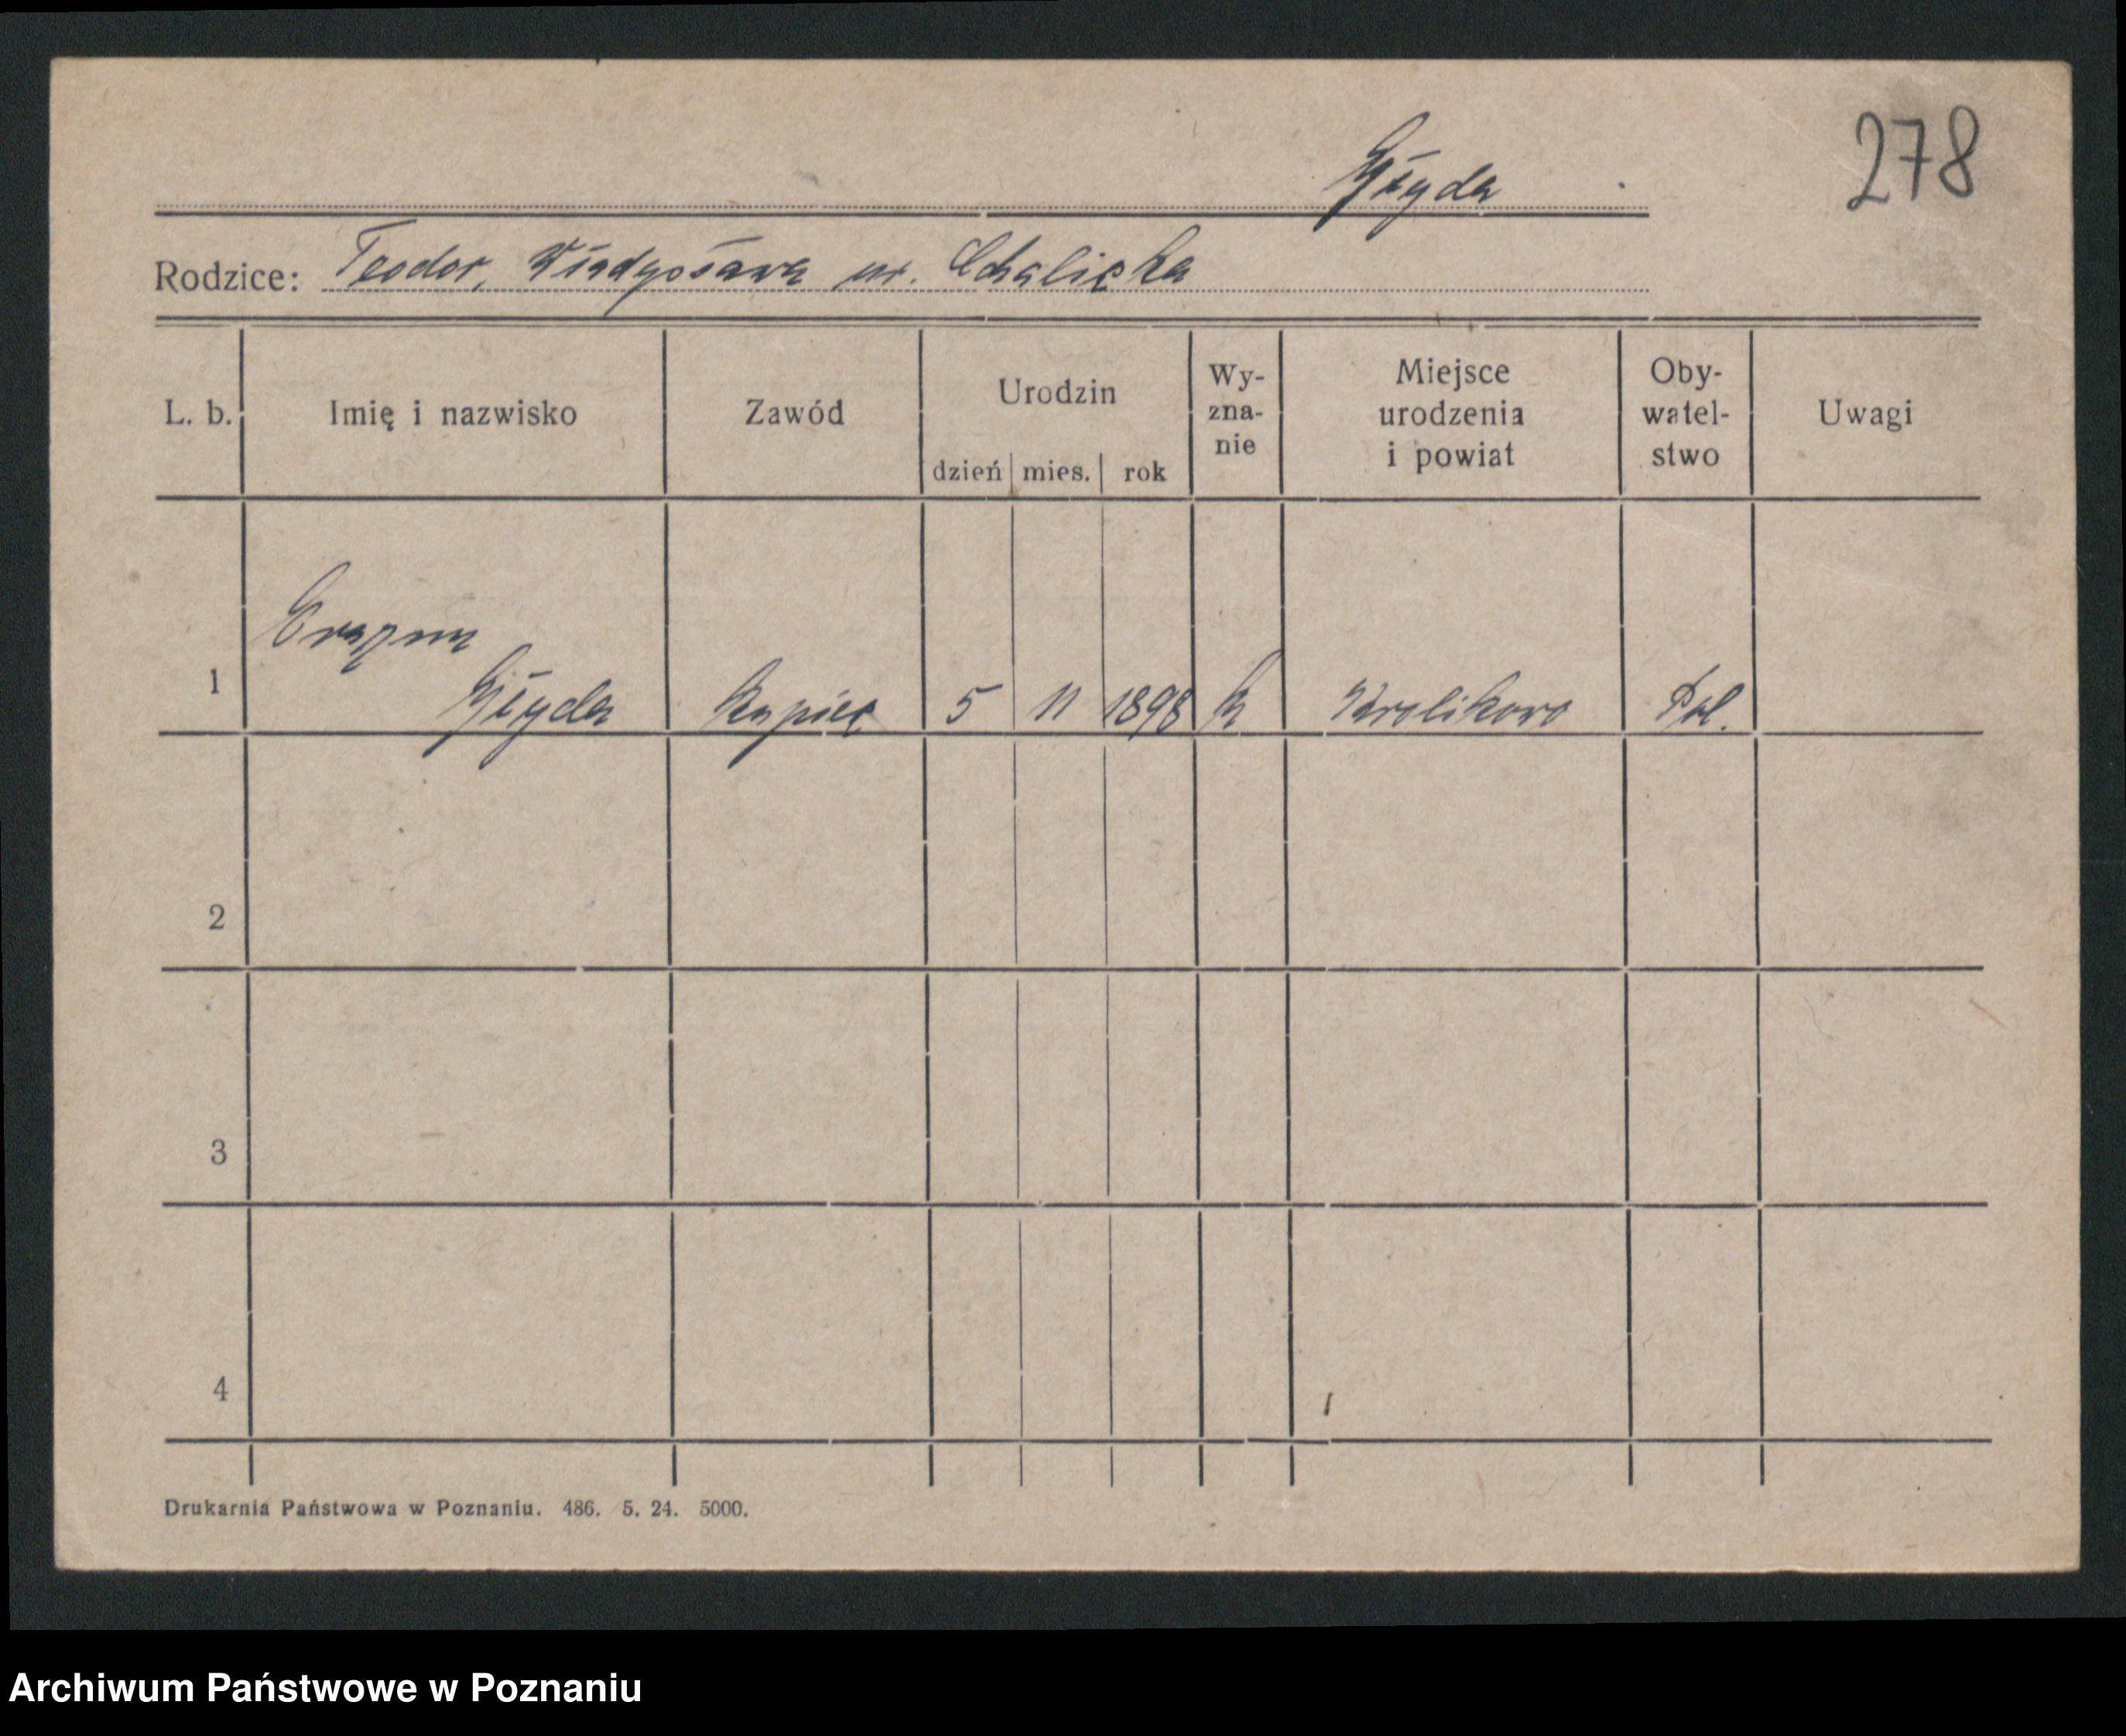 278
Głyda
Rodzice: Teodor, Władysława ur. Chalicka
L. b. Imię i nazwisko Zawód Urodzin dzień mies. rok Wy-zna-nie Miejsce urodzenia i powiat Oby-watel-stwo Uwagi
Erazm
1 Głyda kupiec 5 11 1898 k Krolikowo Pol.
2
3
4
Drukarnia Państwowa w Poznaniu. 486. 5. 24. 5000.
Archiwum Państwowe w Poznaniu